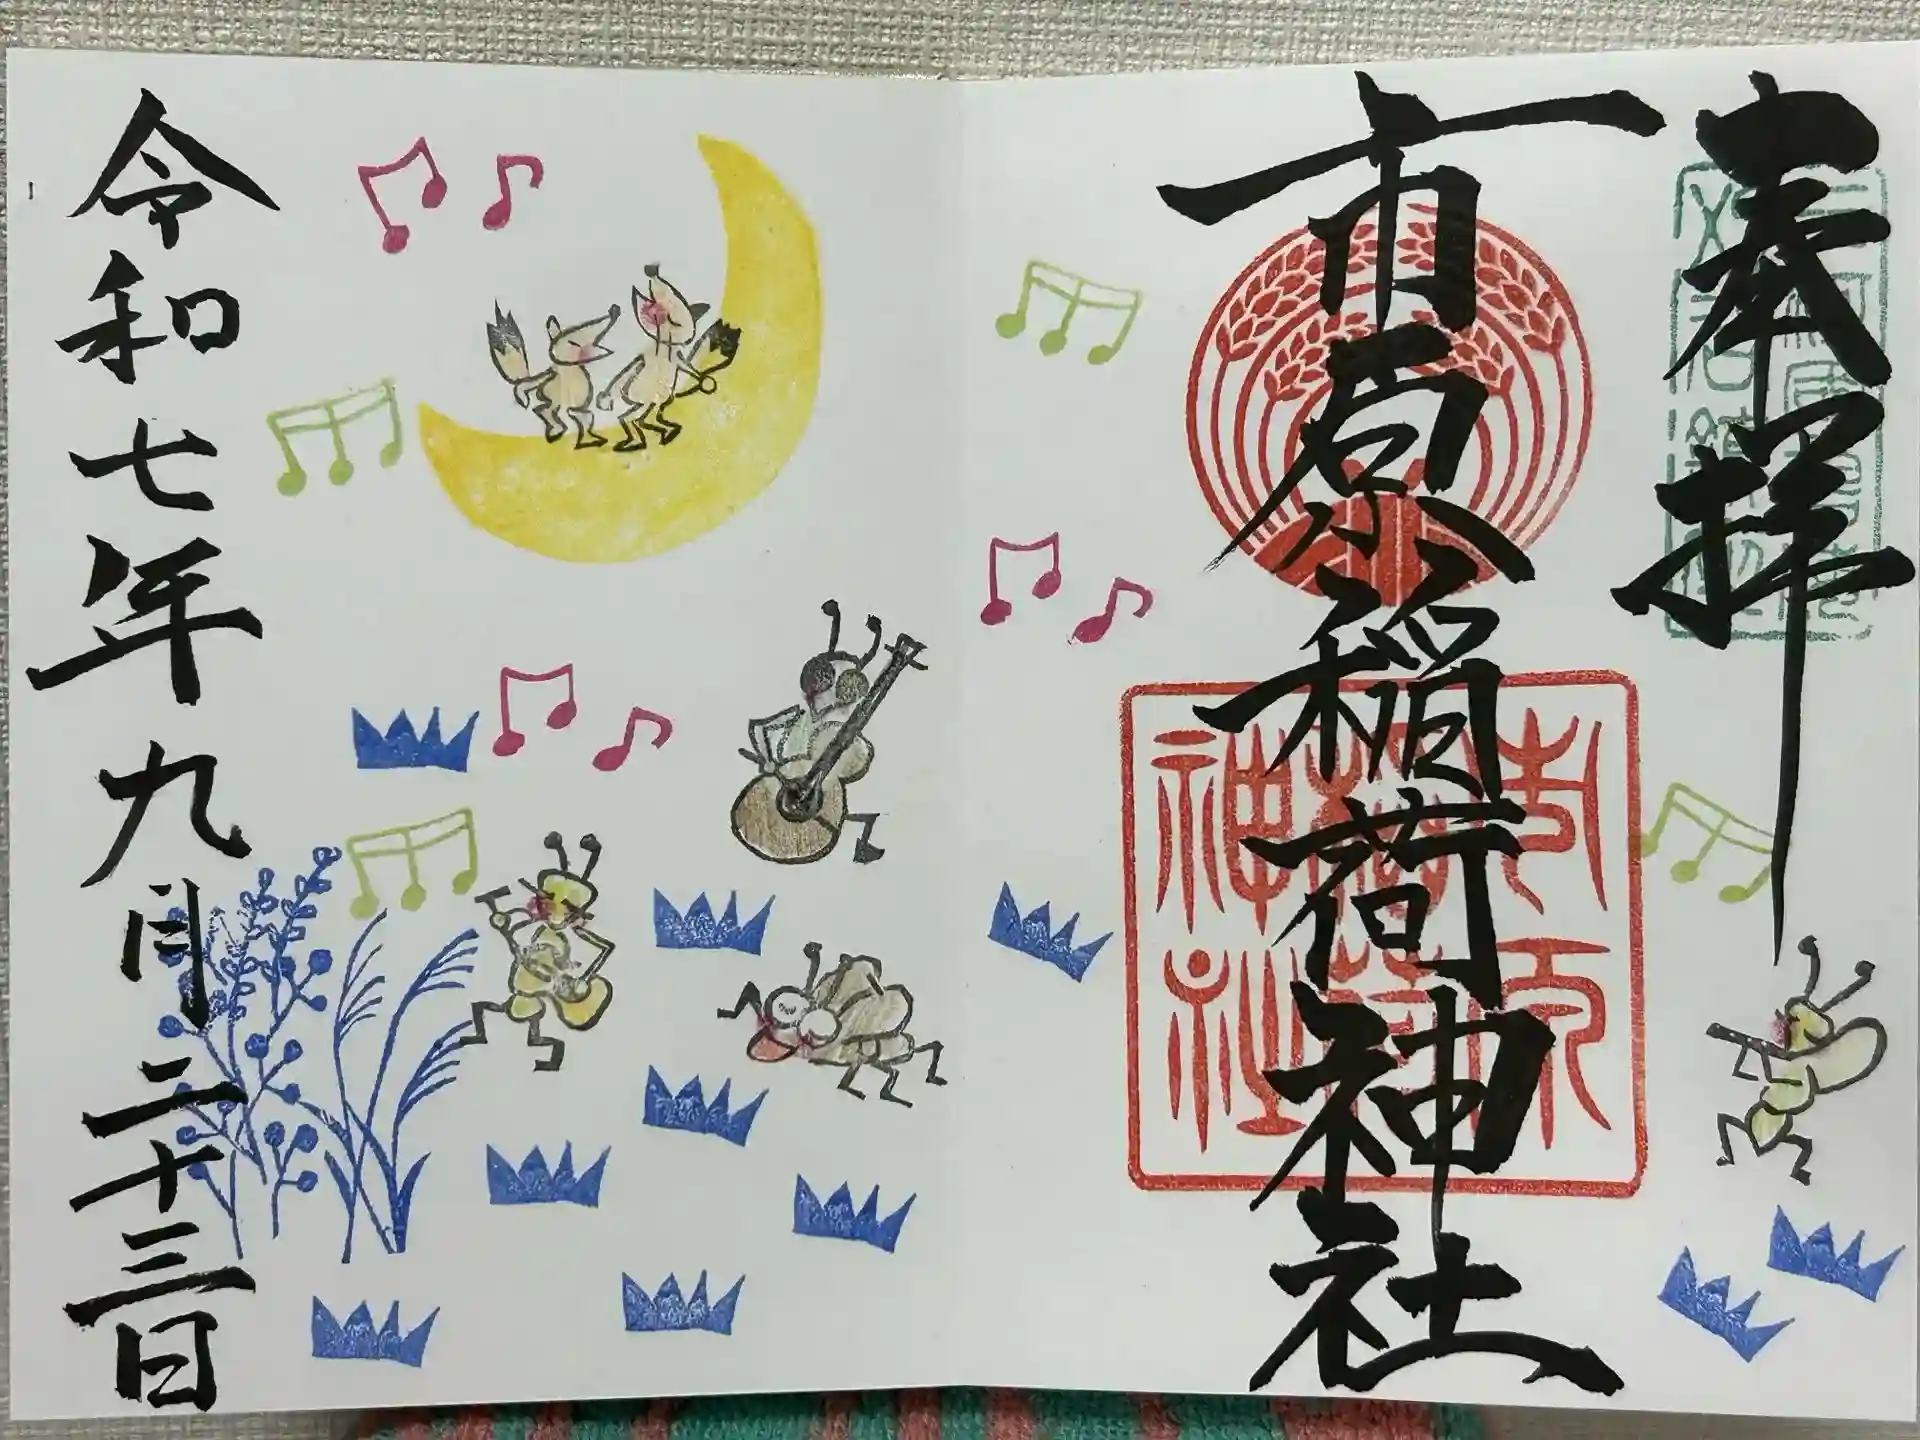 奉拝
市原稲荷神社
市原稲荷神社
令和七年九月二十三日